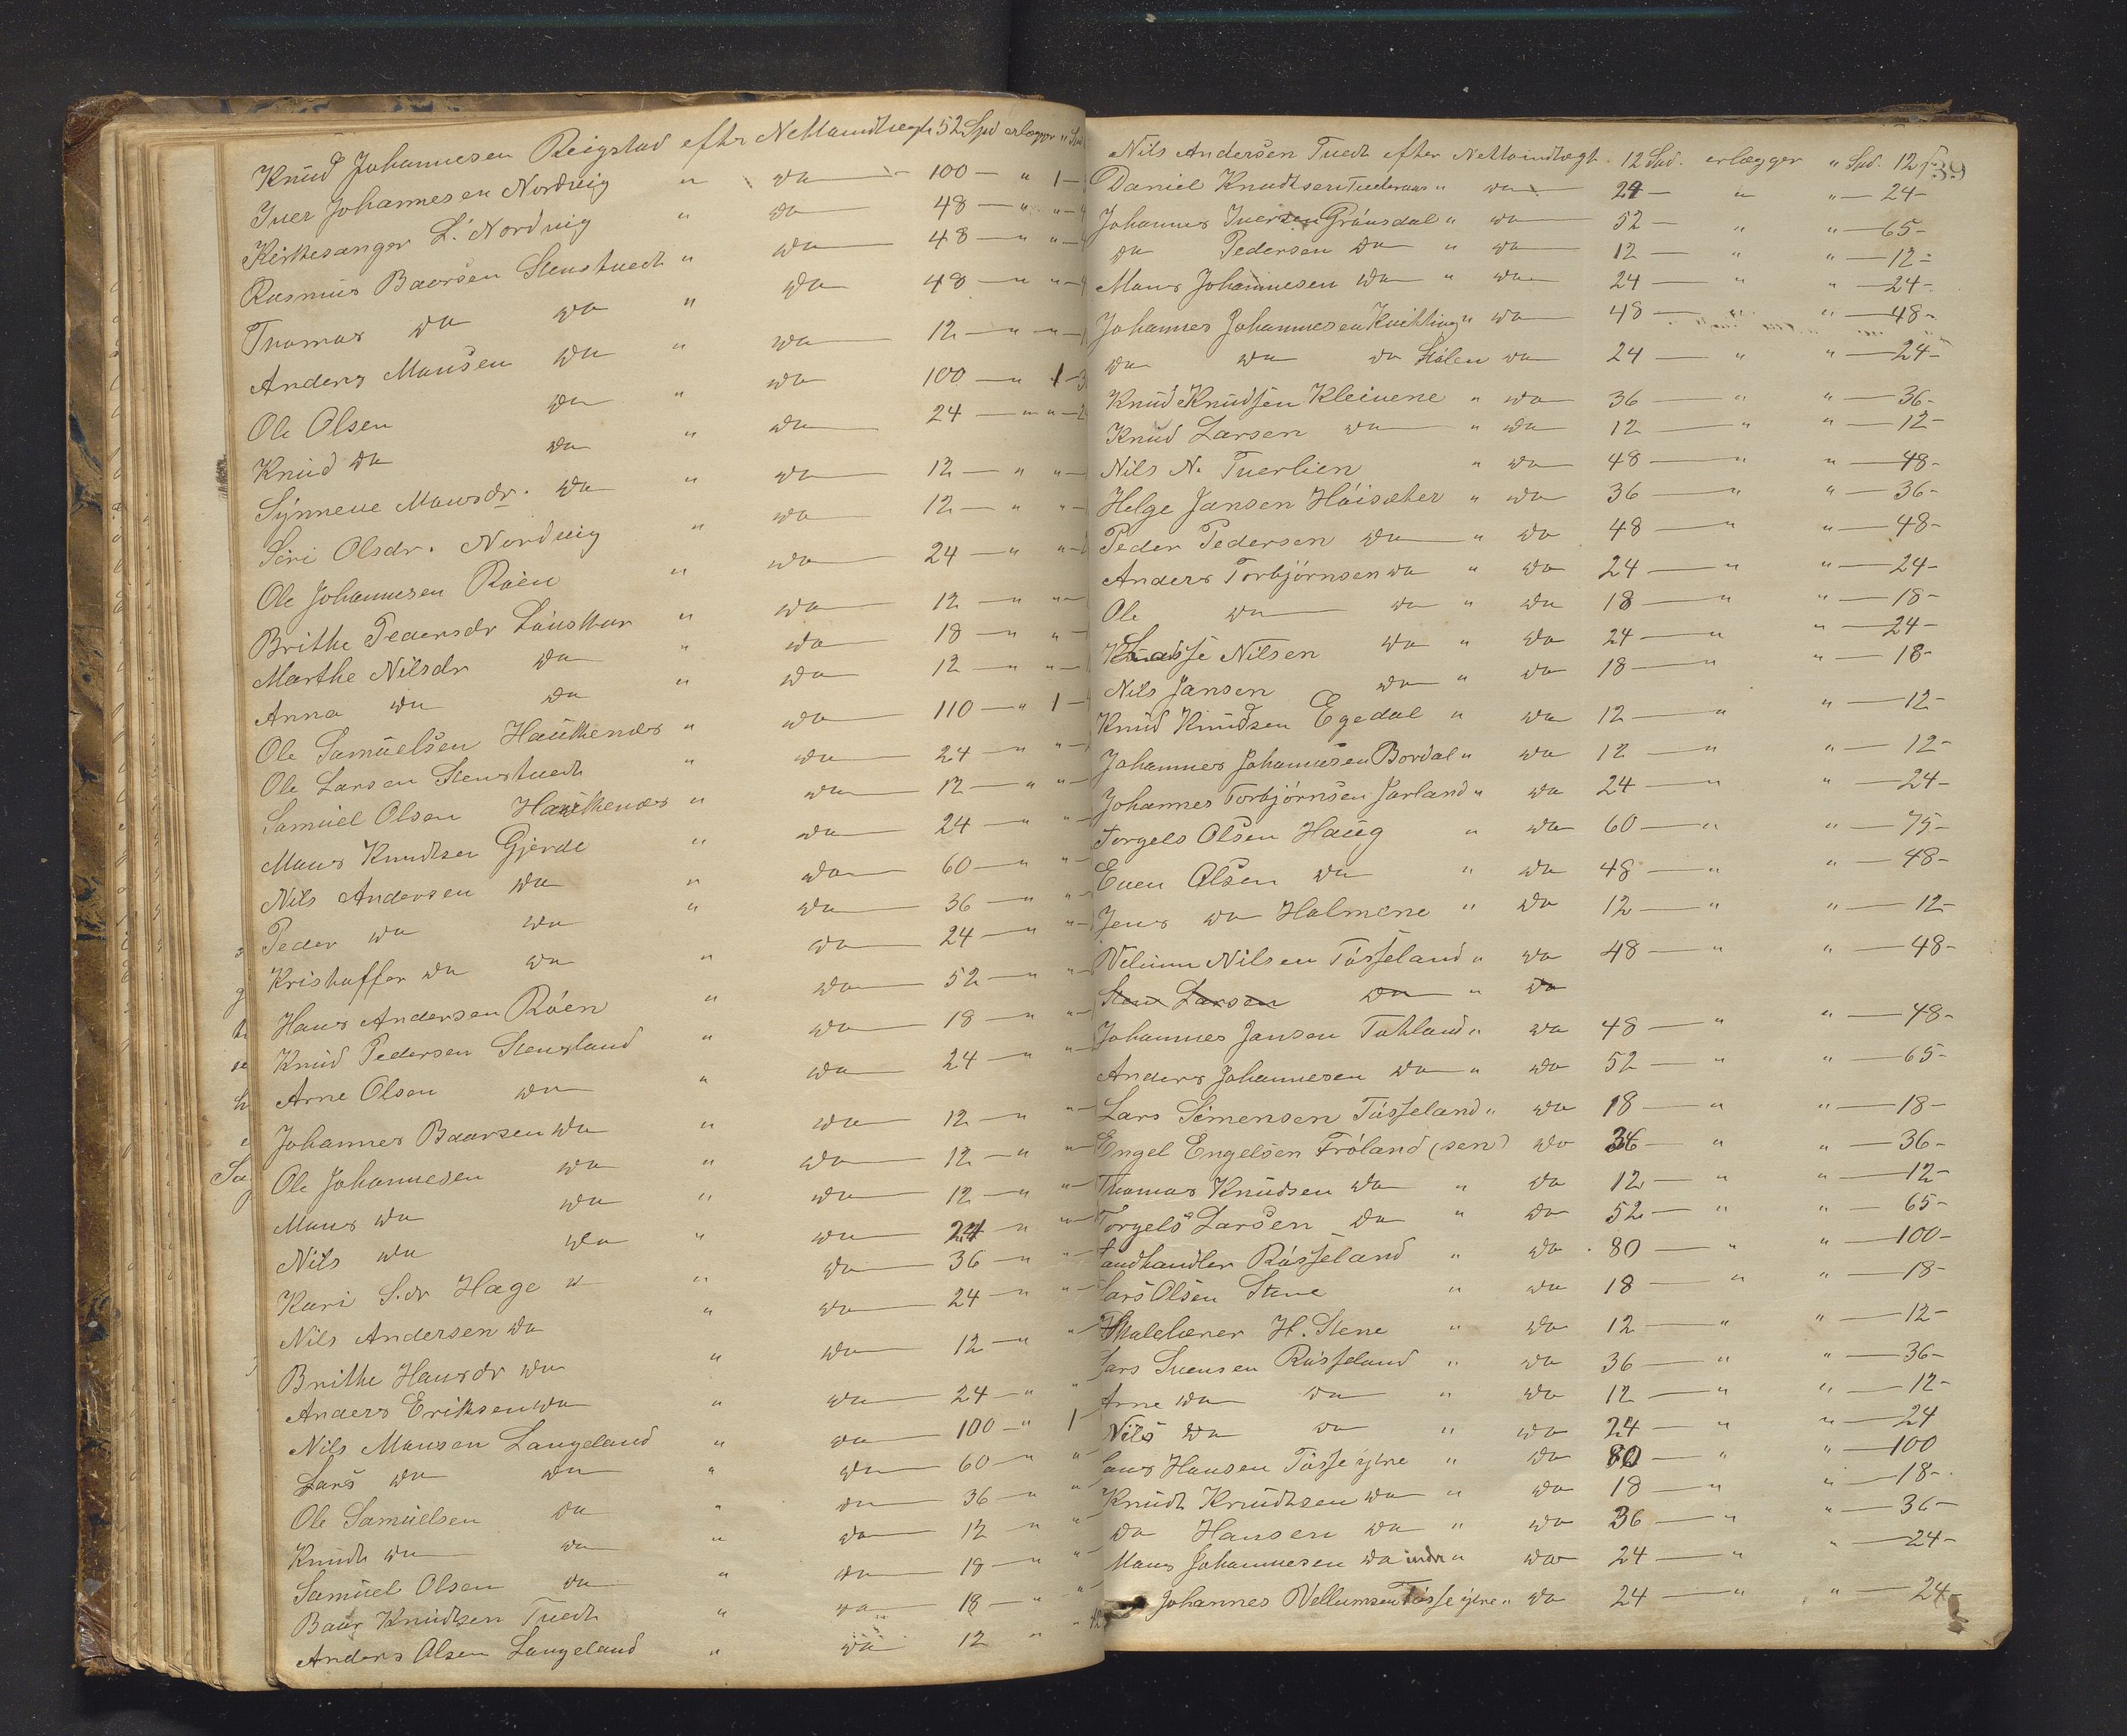 Knud Johannesen Reigstad efter Nettoindtægt 52 Spd erlægger "
Iver Johannesen Nordvig " do 100 — " 1 —
Kirkesanger L. Nordvig " do 48 — " " —
Rasmus Baarsen Stenstvedt " do 48 — " " —
Thomas do do " do 48 — " " —
Anders Monsen do " do 12 — " " —
Ole Olsen do " do 100 — " 1 — 3
Knud do do " do 24 — " " — 2
Synneve Monsdr. do " do 12 — " " —
Siri Olsdr. Nordvig " do 12 — " " —
Ole Johannesen Röen " do 24 — " " —
Brithe Pedersdr " do 12 — " " —
Marthe Nilsdr do " do 18 — " " —
Anna do do " do 12 — " " —
Ole Samuelsen Haukenæs " do 110 — " 1 —
Ole Larsen Stenstvedt " do 24 — " " —
Samuel Olsen Haukenæs " do 12 — " " —
Mons Knudtsen Gjerde " do 24 — " " —
Nils Andersen do " do 60 — " " —
Peder do do " do 36 — " " —
Kristoffer do do " do 24 — " " —
Hans Andersen Röen " do 52 — " " —
Knud Pedersen Stensland " do 18 — " " —
Arne Olsen do " do 24 — " " —
Johannes Baarsen do " do 12 — " " —
Ole Johannesen do " do 12 — " " —
Mons do do " do 12 — " " —
Nils do do " do 24 — " " —
Kari S.dr Hage " do 36 — " " —
Nils Andersen do " do 24 — " " —
Brithe Hansdr do " do 12 — " " —
Anders Eriksen do " do 24 — " " —
Nils Monsen Langeland " do 100 — " 1 —
Lars do do " do 60 — " "
Ole Samuelsen do " do 36 — " "
Knudt do do " do 12 — " "
Samuel Olsen do " do 18 — " "
Baar Knudtsen Tvedt " do 18 — " "
Anders Olsen Langeland " do 12 " "
Nils Andersen Tvedt efter Nettoindtægt 12 Spd. erlægger " Spd. 12 s
39
Daniel Knudtsen Tvederaas " do 24 — " " — 24 -
Johannes Iversen Grönsdal " do 52 — " " — 65 -
do Pedersen do " do 12 — " " — 12 -
Mons Johannesen do " do 24 — " " — 24 -
Johannes Johannesen Kvitting " do 48 — " " — 48 -
do do do Stölen do 24 — " " — 24 -
Knud Knudsen Kleivene " do 36 — " " — 36 -
Knud Larsen do " do 12 — " " — 12 -
Nils N. Tverlien " do 48 — " " — 48 -
Helge Jansen Höisæter " do 36 — " " — 36 -
Peder Pedersen do " do 48 — " " — 48 -
Anders Torbjörnsen do " do 24 — " " — 24 -
Ole do do " do 18 — " " — 18 -
Lasse Nilsen do " do 24 — " " — 24 -
Nils Jansen do " do 18 — " " — 18 -
Knud Knudsen Egedal " do 12 — " " — 12 -
Johannes Johannesen Bordal " do 12 — " " — 12 -
Johannes Torbjörnsen Jarland " do 24 — " " — 24 -
Torgels Olsen Haug " do 60 — " " — 75 -
Even Olsen do " do 48 — " " — 48 -
Jens do Holmene " do 12 — " " — 12 -
Vellum Nilsen Tösseland " do 48 — " " — 48 -
Sten Larsen do " do
Johannes Jansen Totland " do 48 — " " — 48 -
Anders Johannesen do " do 52 — " " — 65 -
Lars Simensen Tösseland " do 18 — " " — 18 -
Engel Engelsen Fröland (sen) do 36 — " " — 36 -
Thomas Knudsen do " do 12 — " " — 12 -
Torgels Larsen do " do 52 — " " — 65 -
Landhandler Rösseland " do 80 — " " — 100 -
Lars Olsen Stene " do 18 — " " — 18 -
Skolelærer H. Stene " do 12 — " " — 12 -
Lars Svensen Rösseland " do 36 — " " — 36 -
Arne do do " do 12 — " " — 12 -
Nils do do " do 24 — " " — 24
Hans Hansen Tösse ytre " do 80 — " " — 100
Knudt Knudtsen do " do 18 — " " — 18 -
do Hansen do " do 36 — " " — 36 -
Mons Johannesen do indre " do 24 — " " — 24 -
Johannes Vellumsen Tösse ytre " do 24 — " " — 24 -